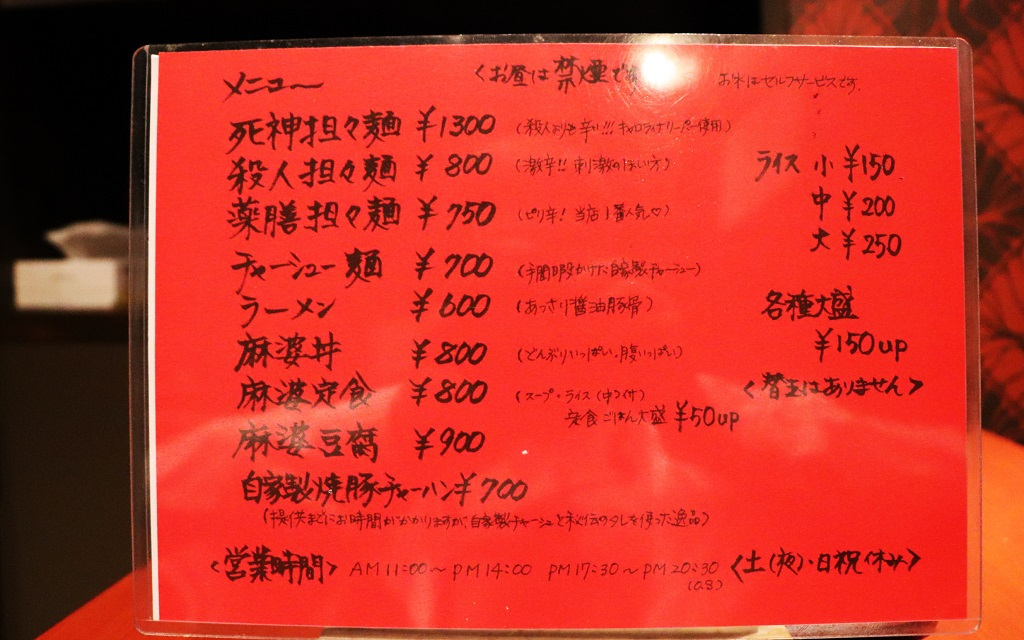 メニュー
<お昼は禁煙です
お水はセルフサービスです。
死神担々麺 ¥1300 (殺人よりも辛い!!! キャロライナリーパー使用)
殺人担々麺 ¥800 (激辛!! 刺激のほしい方)
薬膳担々麺 ¥750 (ピリ辛! 当店1番人気♡)
チャーシュー麺 ¥700 (手間暇かけた自家製チャーシュー)
ラーメン ¥600 (あっさり醤油豚骨)
麻婆丼 ¥800 (どんぶりいっぱい、腹いっぱい)
麻婆定食 ¥800 (スープ・ライス(中)付)
定食ごはん大盛 ¥50up
麻婆豆腐 ¥900
自家製焼豚チャーハン ¥700
(提供までにお時間がかかりますが、自家製チャーシューと秘伝のタレを使った逸品)
ライス 小 ¥150
中 ¥200
大 ¥250
各種大盛
¥150up
<替玉はありません>
<営業時間> AM11:00～PM14:00 PM17:30～PM20:30 <土(夜)・日祝休み>
(O.S)